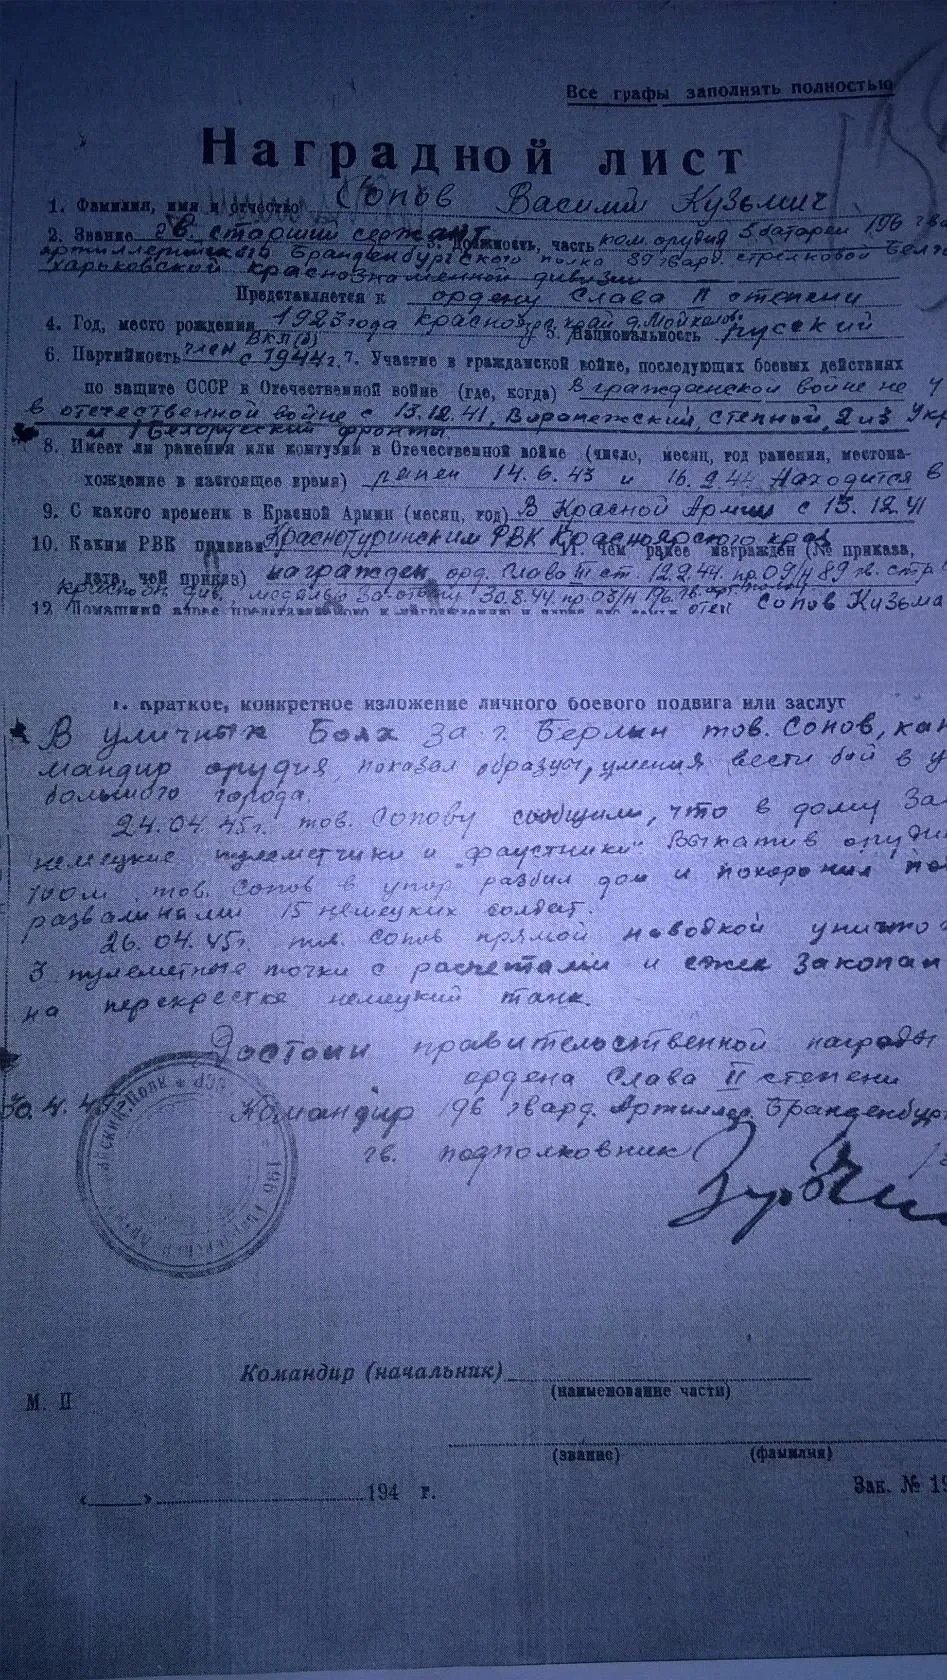 Все графы заполнять полностью
Наградной лист
1. Фамилия, имя и отчество Сопов Василий Кузьмич
2. Звание гв. старший сержант 3. Должность, часть ком. орудия 5 батареи 196 гв.
артиллерийского Бранденбургского полка 89 гвард. стрелковой
харьковской краснознаменной дивизии
Представляется к ордену Слава II степени
4. Год, место рождения 1923 года Красноярс. край д.
5. Национальность русский
6. Партийность член ВКП(б) с 1944 г. 7. Участие в гражданской войне, последующих боевых действиях
по защите СССР в Отечественной войне (где, когда) В гражданской войне не у
в отечественной войне с 13.12.41, Воронежский, степной, 2 и 3 Укр
и 1 Белоруский фронты
8. Имеет ли ранения или контузии в Отечественной войне (число, месяц, год ранения, местона-
хождение в настоящее время) ранен 14.6.43 и 16.2.44 Находится в
9. С какого времени в Красной Армии (месяц, год) В Красной Армии с 13.12.41
10. Каким РВК призван Краснотуринским РВК Красноярского края
11. Чем ранее награжден (№ приказа,
дата, чей приказ) награжден орд. Слава III ст. 12.2.44. пр. 09/н 89 гв. стр
краснозн. див., медалью За отвагу 30.8.44. пр. 03/н 196 гв. арт. полка
12. Домашний адрес представляемого к награждению и адрес его семьи отец Сопов Кузьма
I. Краткое, конкретное изложение личного боевого подвига или заслуг
В уличных Боях за г. Берлин тов. Сопов,
мандир орудия, показал образцы, умения вести бой в у
большого города.
24.04.45г. тов. Сопову сообщили, что в дому За
немецкие пулеметчики и „фаустники". Выкатив оруди
100м тов. Сопов в упор разбил дом и похоронил под
развалинами 15 немецких солдат.
26.04.45г. тов. Сопов прямой наводкой уничто
3 пулеметные точки с расчетами и сжег Закопан
на перекрестке немецкий танк.
Достоин правительственной награды
ордена Слава II степени
Командир 196 гвард. Артиллер. Бранденбург
гв. подполковник
Командир (начальник)
(наименование части)
М. П
(звание) (фамилия)
«____» 194 г.
Зак. № 19